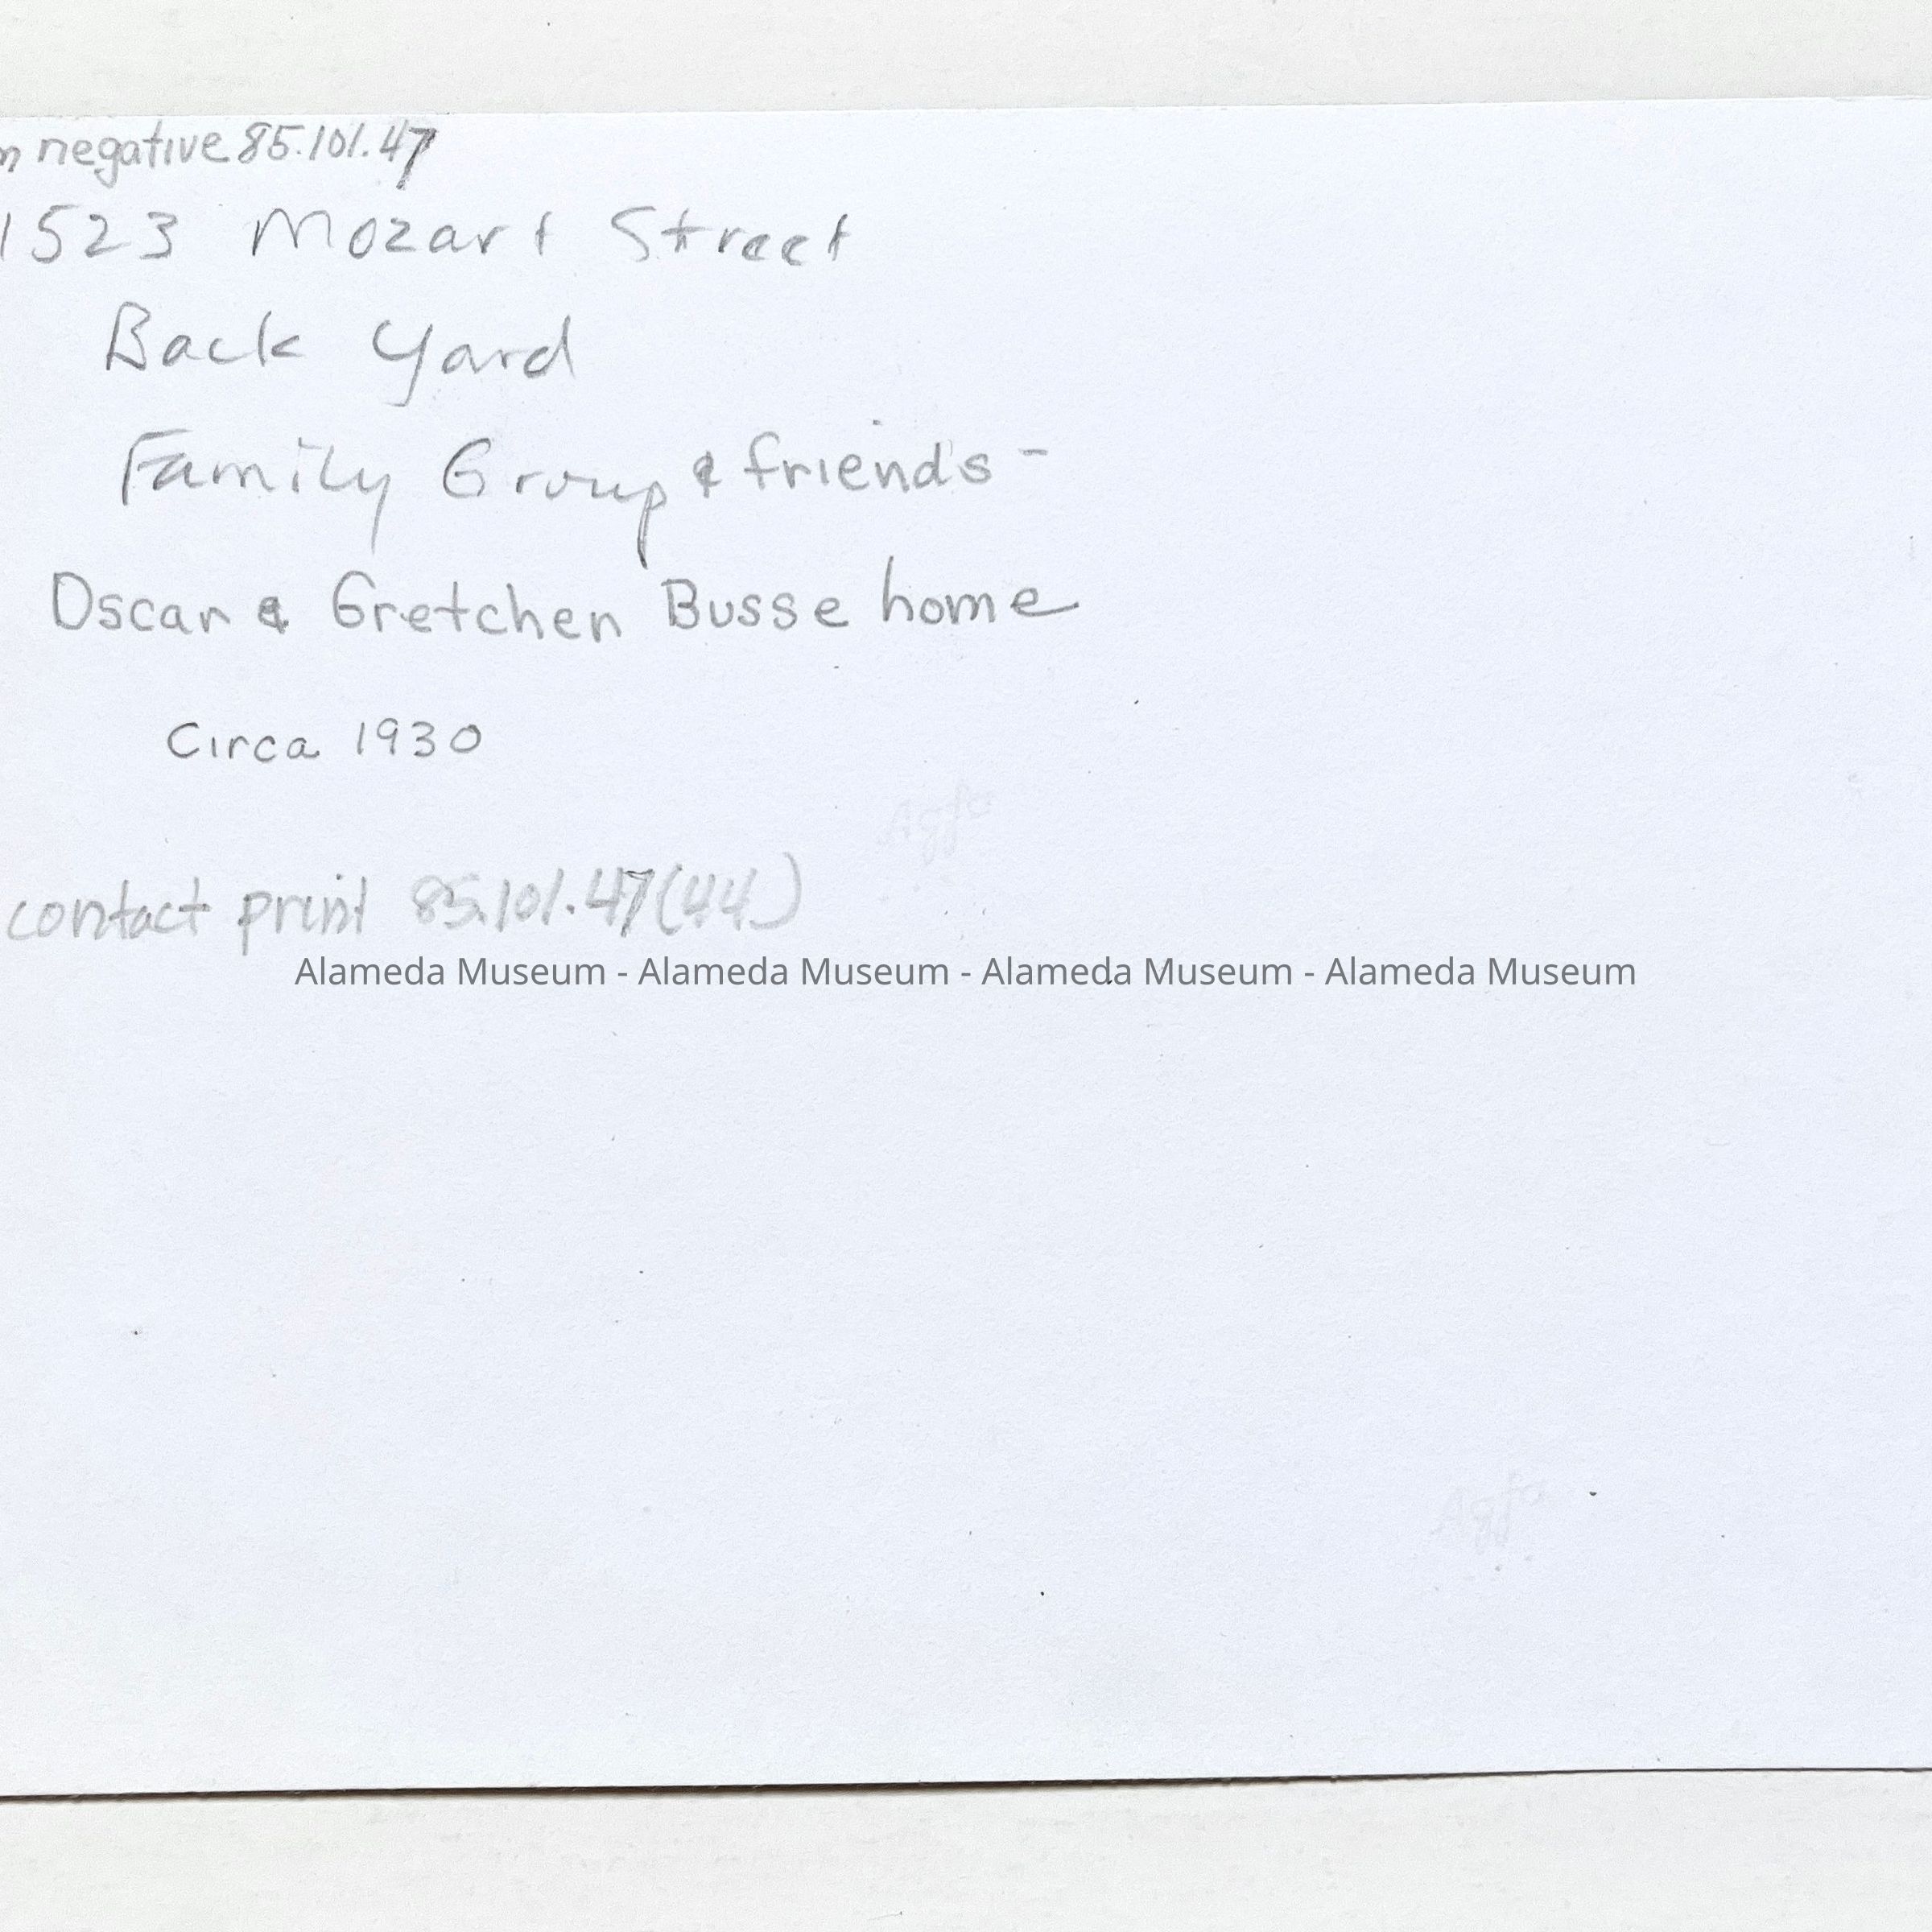 negative 85.101.47
1523 Mozart Street
Back Yard
Family Group & friends -
Oscar & Gretchen Busse home
Circa 1930
contact print 85.101.47(44)
Alameda Museum - Alameda Museum - Alameda Museum - Alameda Museum